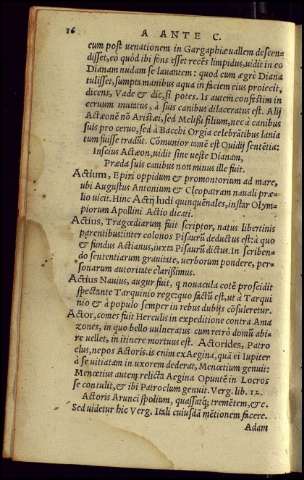 16 A ANTE C.
cum post uenationem in Gargaphiæ uallem descen
disset, eo quòd ibi fons esset recēs limpidus, uidit in eo
Dianam nudam se lauantem: quod cum ægrè Diana
tulisset, sumptam manibus aqua in faciem eius proiecit,
dicens, Vade & dic, si potes. Is autem confestim in
ceruum mutatus, à suis canibus dilaceratus est. Alij
Actæonē nō Aristæi, sed Melissi filium, nec à canibus
suis pro ceruo, sed à Bacchi Orgia celebrātibus lania
tum fuisse tradūt. Comunior tamē est Ouidij sētētia:
Inscius Actæon, uidit sine ueste Dianam,
Præda suis canibus non minus ille fuit.
Actium, Epiri oppidum & promontorium ad mare,
ubi Augustus Antonium & Cleopatram nauali præ-
lio uicit. Hinc Actij ludi quinquēnales, instar Olym
piorum Apollini Actio dicati.
Actius, Tragœdiarum fuit scriptor, natus libertinis
parentibus: inter colonos Pisaurū deductus est: à quo
& fundus Actianus, iuxta Pisaurū dictus. In scriben-
do sententiarum grauitate, uerborum pondere, per-
sonarum autoritate clarissimus.
Actius Nauius, augur fuit, q nouacula cotē proscidit
spectante Tarquinio rege: quo factū est, ut à Tarqui
nio & à populo semper in rebus dubijs cōsuleretur.
Actor, comes fuit Herculis in expeditione contra Ama
zones, in quo bello uulneratus cum retrò domū abi-
re uellet, in itinere mortuus est. Actorides, Patro
clus, nepos Actoris. is enim ex Aegina, quā ei Iupiter
à se uitiatam in uxorem dederat, Menœtium genuit:
Menœtius autem relicta Aegina Opuntē in Locros
se contulit, & ibi Patroclum genuit. Verg. lib. 12.
Actoris Arunci spolium, quassatq; tremētem, &c.
Sed uidetur hic Verg. Itali cuiusdā mētionem facere.
Adam